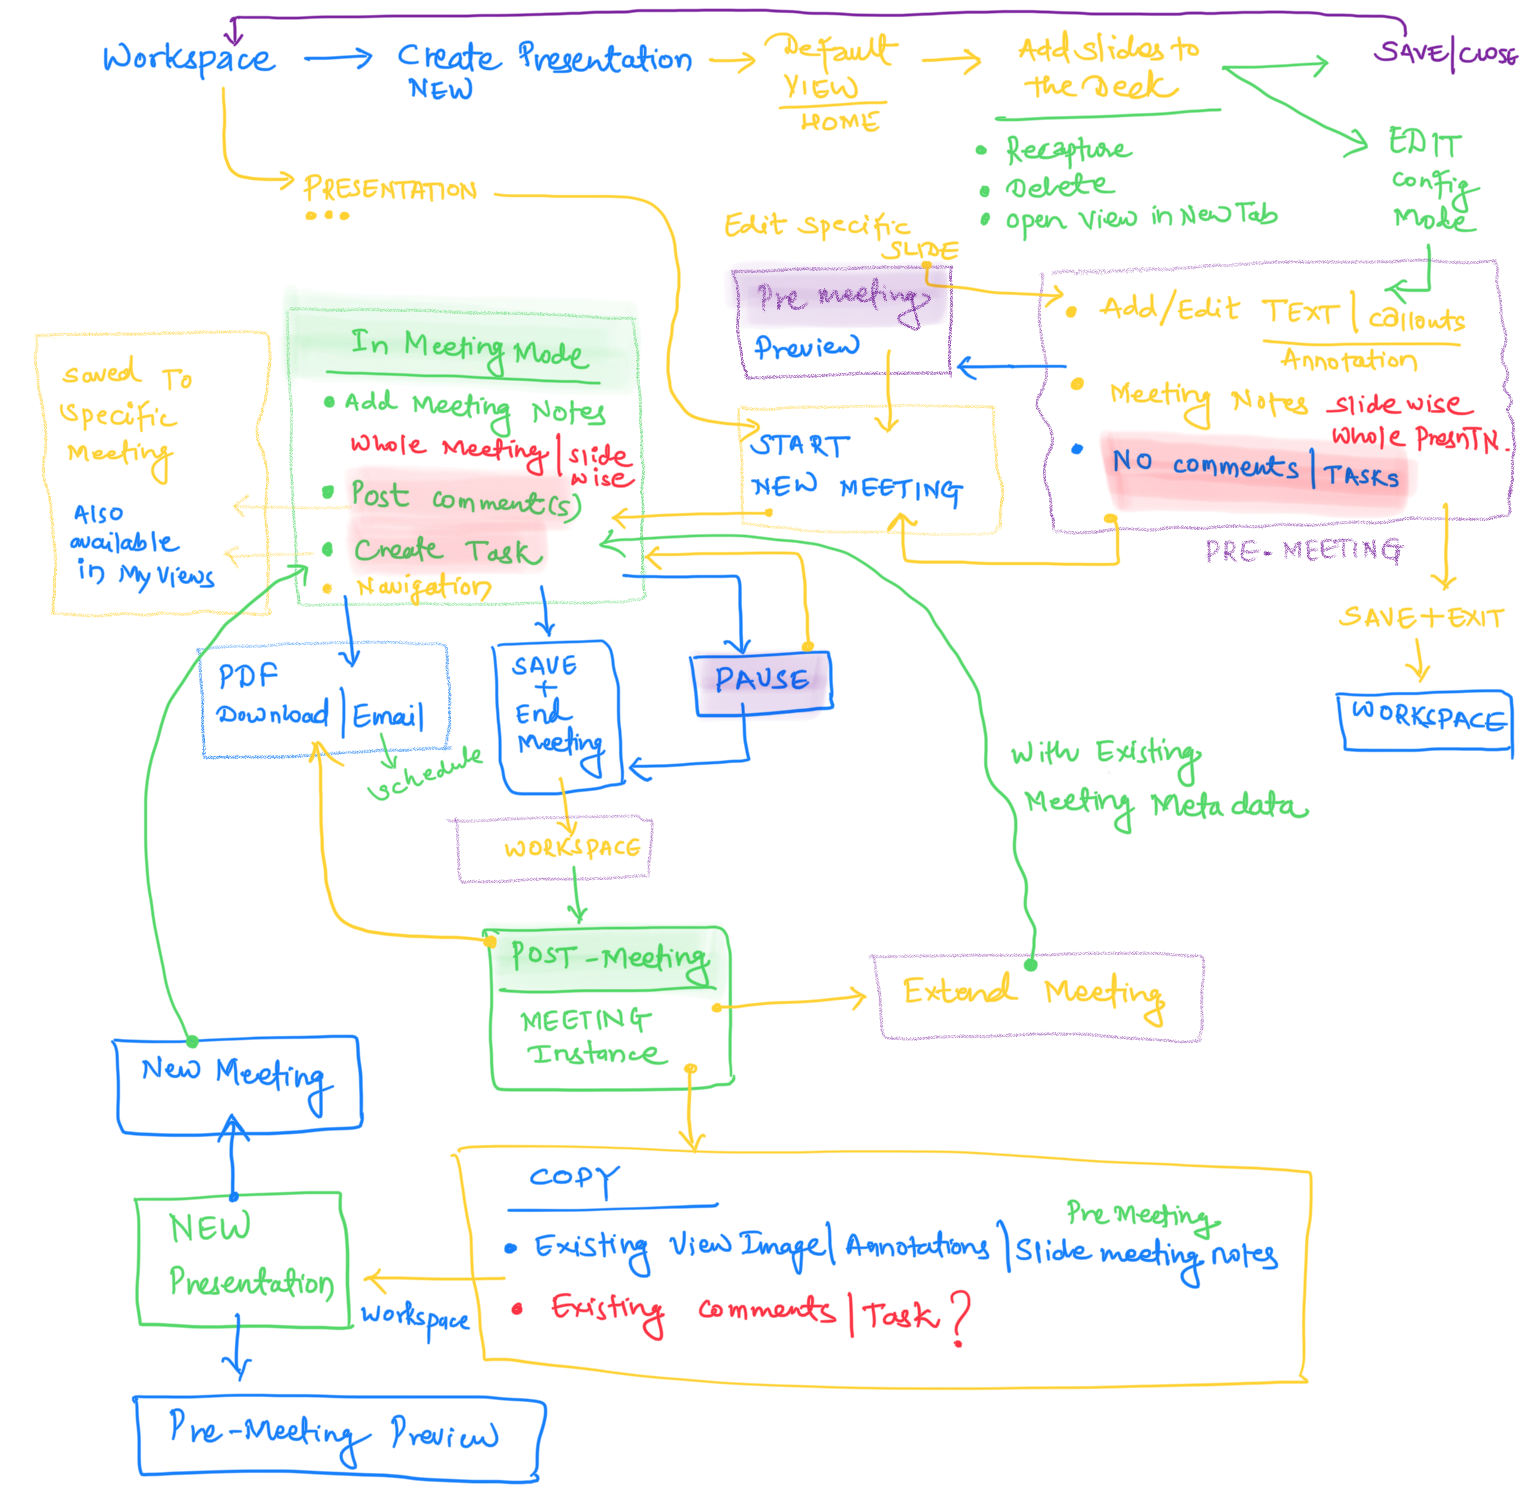 Workspace
Create Presentation
NEW
Default
VIEW
HOME
Add slides to
the Deck
SAVE/CLOSE
• Recapture
• Delete
• open view in New Tab
EDIT
Config
Mode
PRESENTATION
...
Edit Specific
SLIDE
Pre meeting
Preview
• Add/Edit TEXT | Callouts
Annotation
• Meeting Notes slide wise
Whole PresnTN.
• NO comments | TASKS
PRE-MEETING
SAVE+EXIT
WORKSPACE
In Meeting Mode
• Add Meeting Notes
Whole Meeting | slide
wise
• Post comment(s)
• Create Task
• Navigation
Saved To
Specific
Meeting
Also
available
in My Views
START
NEW MEETING
PDF
Download | Email
schedule
SAVE
+
End
Meeting
PAUSE
WORKSPACE
With Existing
Meeting Meta data
POST-Meeting
MEETING
Instance
Extend Meeting
New Meeting
NEW
Presentation
Workspace
Pre-Meeting Preview
COPY
Pre Meeting
• Existing View Image | Annotations | Slide meeting notes
• Existing comments | Task?